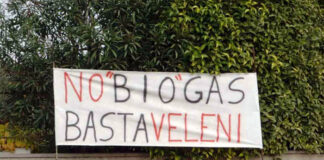 NO "BIO" GAS
BASTA VELENI